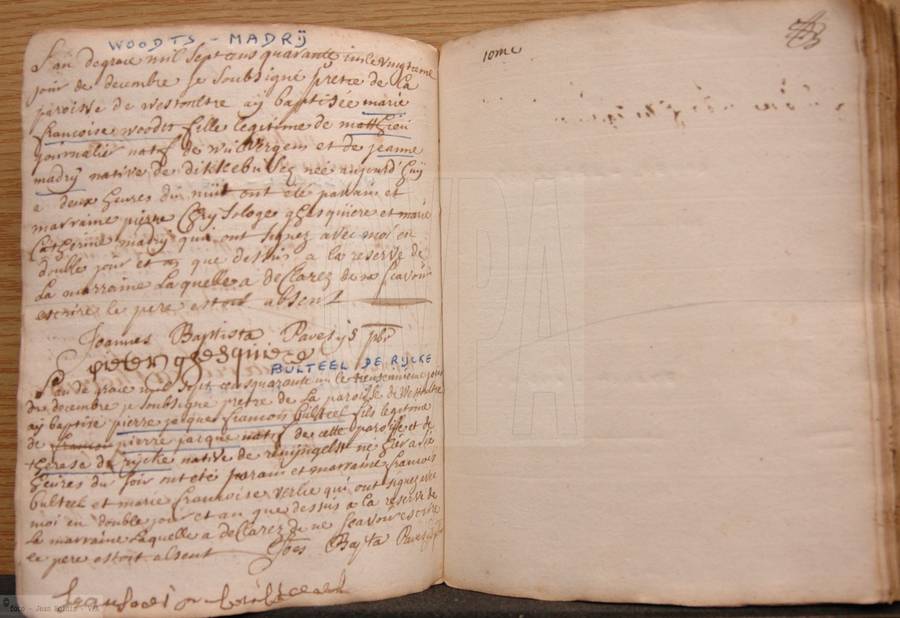 WOODTS - MADRIJ
L'an de grace mil sept cens quarante un le vingtieme
jour de decembre je soubsigné pretre de la
paroisse de westoultre aij baptisée marie
francoise woodts fille legitime de matthieu
journalier natif de wulvergem et de jeanne
madrij native de dikkebusch née aujourd'huij
a deux heures du nuit ont eté parrain et
marraine pierre Chrijsologe ghesquiere et marie
Catherine madrij qui ont signez avec moi en
double jour et an que dessus a la reserve de
la marraine laquelle a declarez de ne scavoir
escrire le pere estoit absent
Joannes Baptista Pavesijs pbr
pieter ghesquiere
BULTEEL DE RIJCKE
L'an de grace mil sept cens quarante un le jour
du decembre je soubsigné pretre de la paroisse de Westoultre
aij baptisé pierre jacques francois bulteel fils legitime
de francois pierre jacque natif de cette paroisse et de
therese de rijcke native de reninghelst né hier a six
heures du soir ont eté parrain et marraine francois
bulteel et marie francoise verlie qui ont signez avec
moi en double jour et an que dessus a la reserve de
la marraine laquelle a declarez de ne scavoir escrire
le pere estoit absent Joes Bapta Pavesijs
fransoois bulteel
10me
VPA
© foto - Joan Soluis - VPA